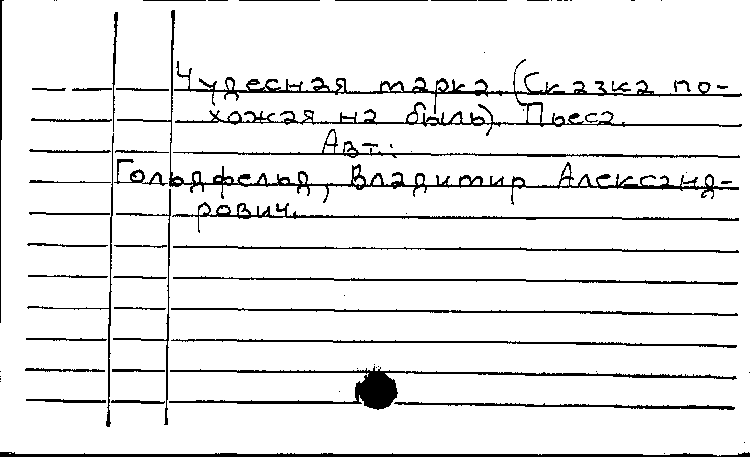 Чудесная марка. (Сказка по-
хожая на быль). Пьеса.
Авт.:
Гольдфельд, Владимир Александ-
рович.